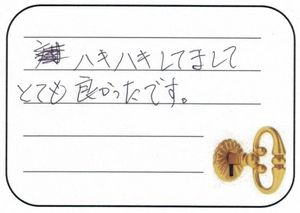 ハキハキしてまして
とても良かったです。